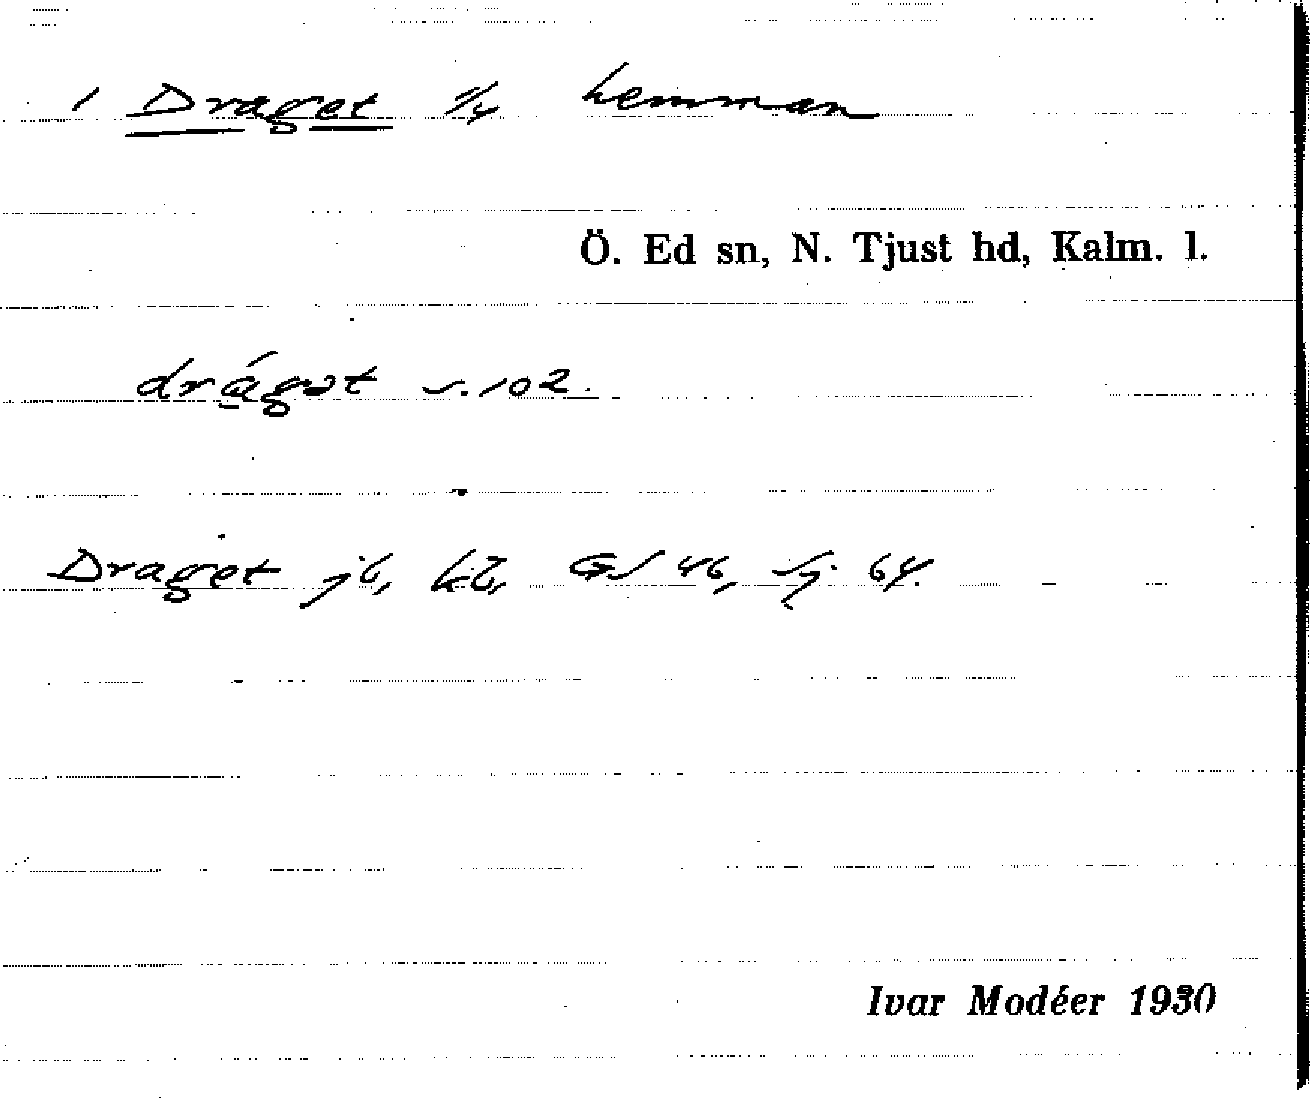 1 Draget 1/4 hemman
Ö. Ed sn, N. Tjust hd, Kalm. l.
drágət s. 102.
Draget jb, kb, GS 46, 64.
Ivar Modéer 1930